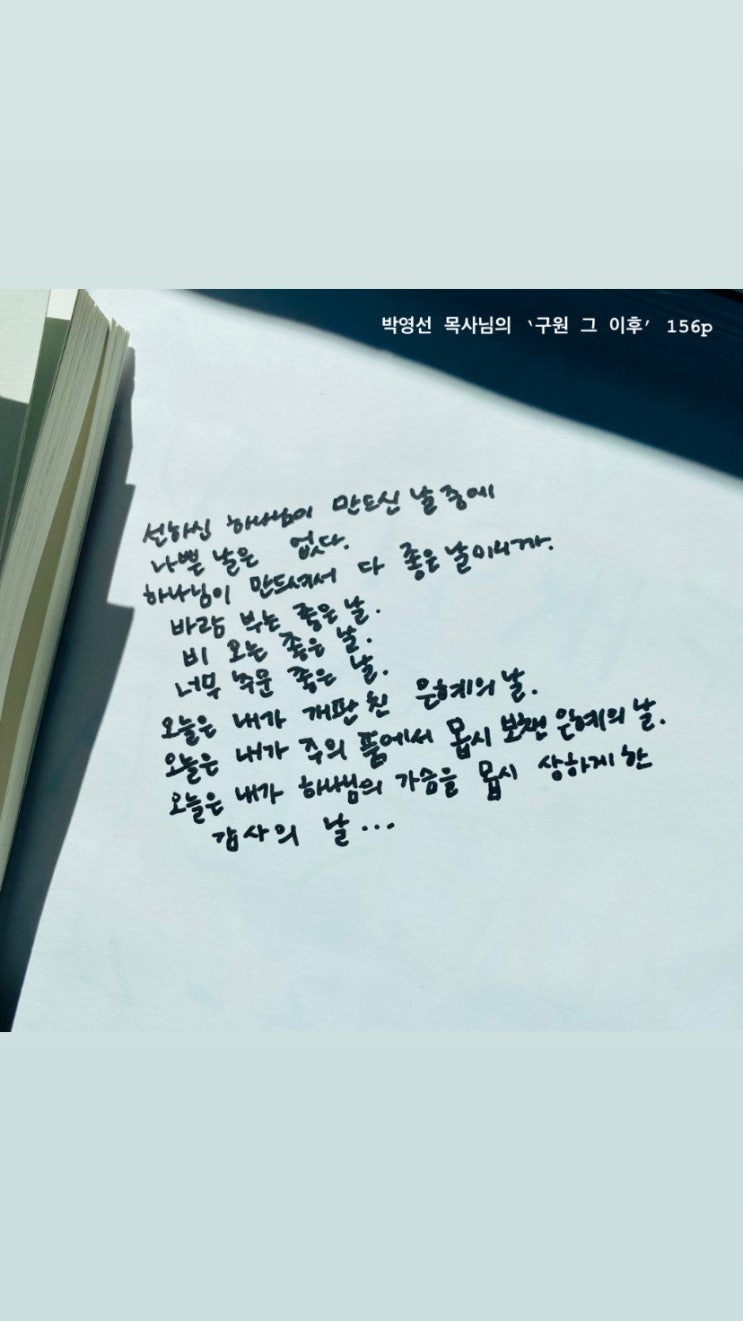 박영선 목사님의 '구원 그 이후' 156p
선하신 하나님이 만드신 날 중에
나쁜 날은 없다.
하나님이 만드셔서 다 좋은 날이니까.
바람 부는 좋은 날.
비 오는 좋은 날.
너무 추운 좋은 날.
오늘은 내가 개판 친 은혜의 날.
오늘은 내가 주의 품에서 몹시 보챈 은혜의 날.
오늘은 내가 하나님의 가슴을 몹시 상하게 한
감사의 날...